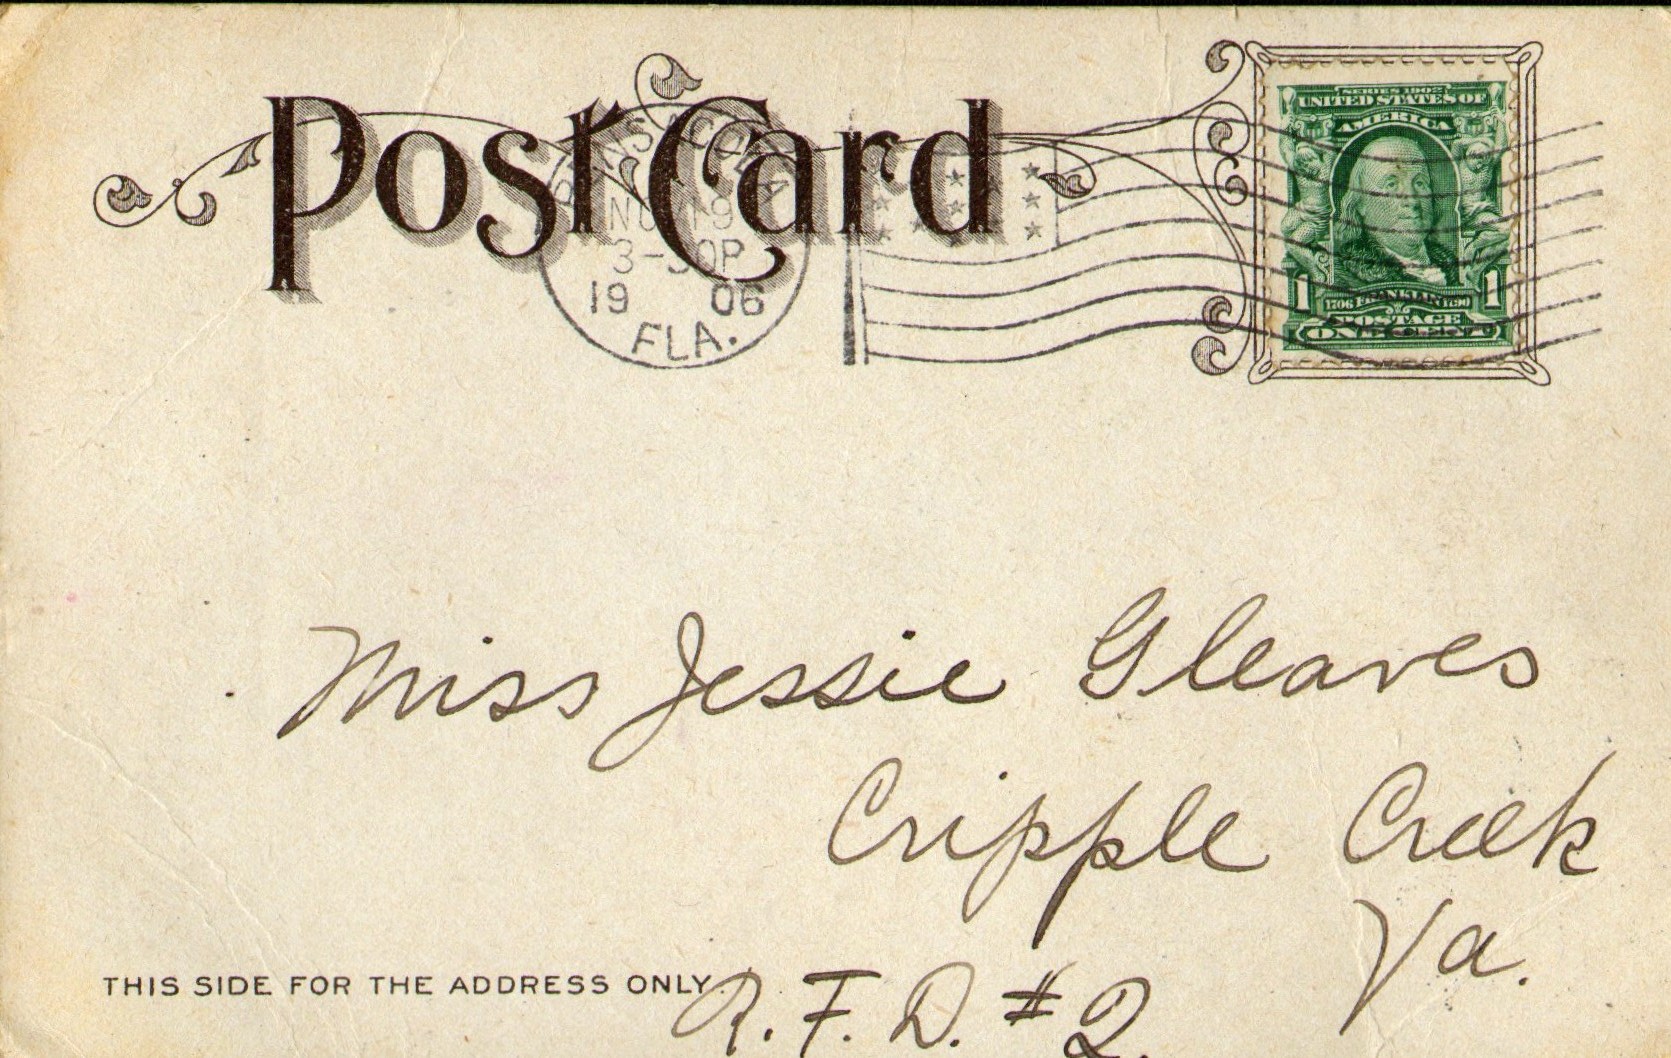 Post Card
PENSACOLA
NOV 19
3-30P
1906
FLA.
SERIES 1902
UNITED STATES OF
AMERICA
1 1706 FRANKLIN 1790 1
POSTAGE
ONE CENT
Miss Jessie Gleaves
Cripple Creek
Va.
THIS SIDE FOR THE ADDRESS ONLY.
R. F. D. #2.